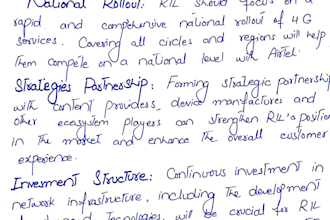 National Rollout: RIL should focus on a
rapid and comprehensive national rollout of 4G
services. Covering all circles and regions will help
them compete on a national level with Airtel.
Strategies Partnership: Forming strategic partnership
with content providers, device manufactures and
other ecosystem players can strengthen RIL's position
in the market and enhance the overall customer
experience.
Inversment Structure: Continuous investment in
network infrastructure, including the development
will be crucial for RIL